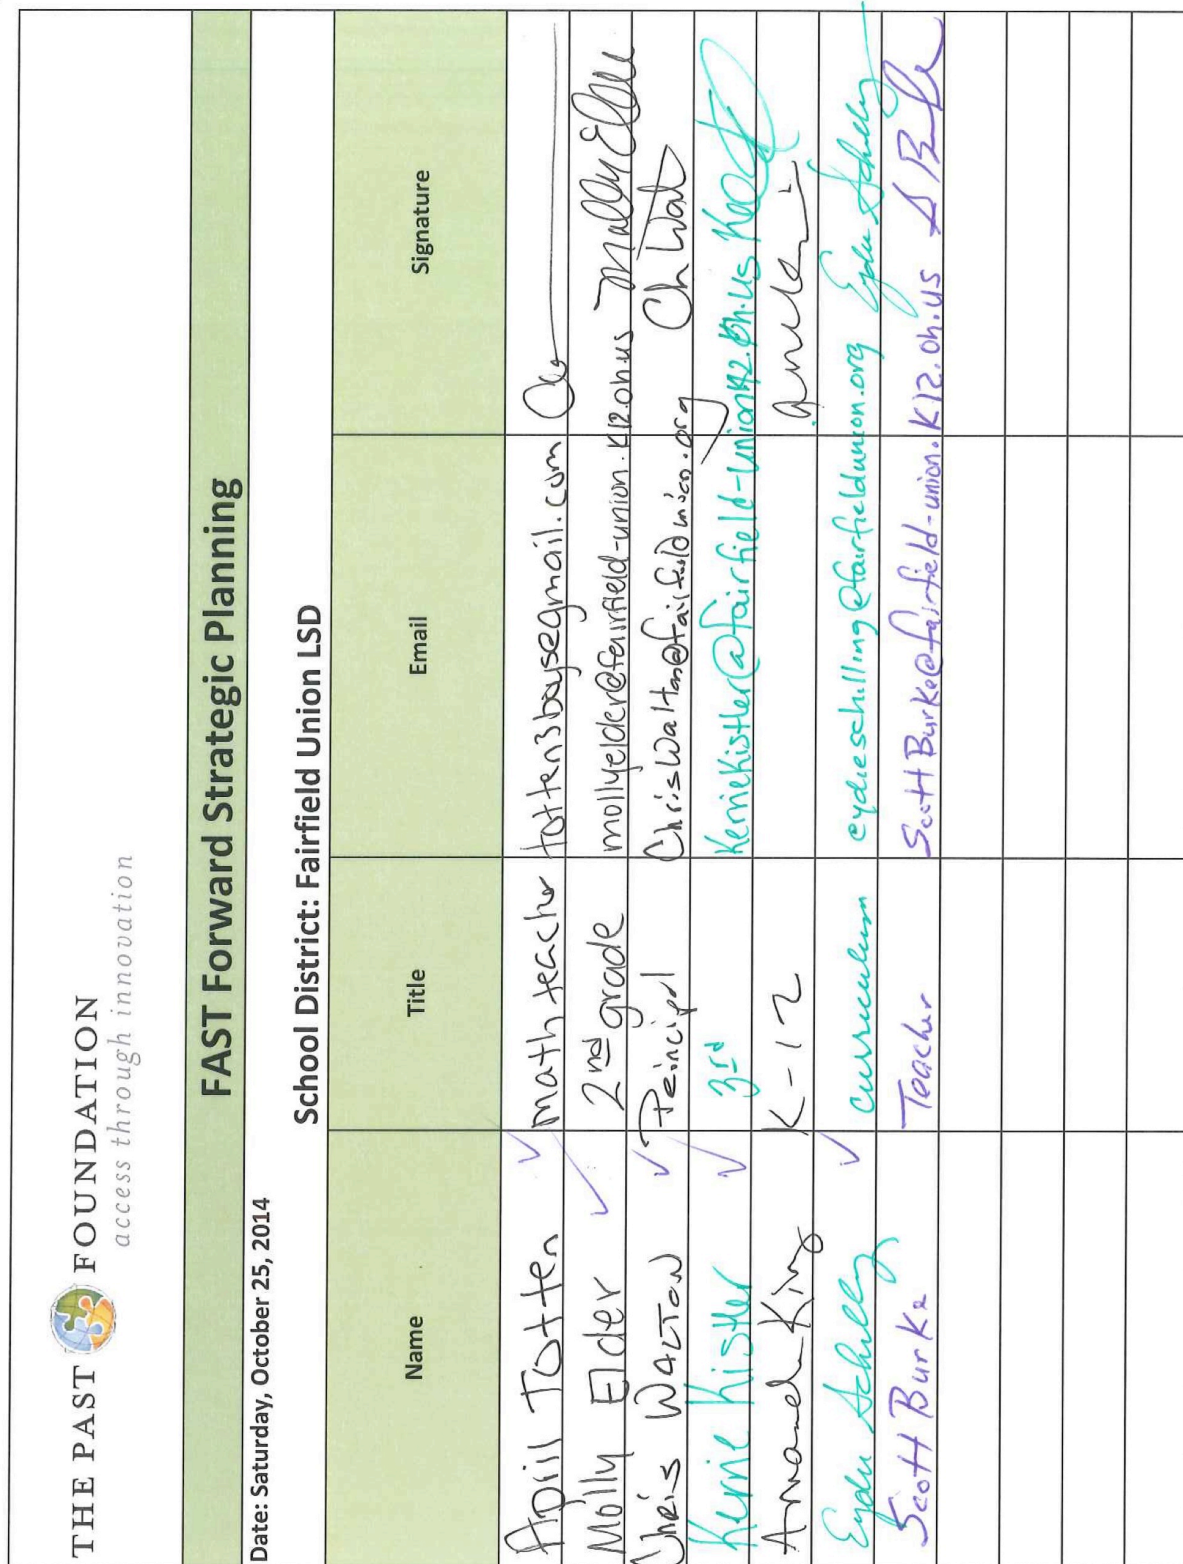 THE PAST FOUNDATION
access through innovation
FAST Forward Strategic Planning
Date: Saturday, October 25, 2014
School District: Fairfield Union LSD
Name Title Email Signature
April Totten ✓ math teacher totten3boys@gmail.com
Molly Elder ✓ 2nd grade mollyelder@fairfield-union.k12.oh.us Molly Elder
Chris Walton ✓ Principal ChrisWalton@fairfieldunion.org Ch Walt
Kerrie Kistler ✓ 3rd kerriekistler@fairfield-union.k12.oh.us
King K-12
Schilling ✓ Curriculum eydieschilling@fairfieldunion.org
Scott Burke Teacher ScottBurke@fairfield-union.k12.oh.us